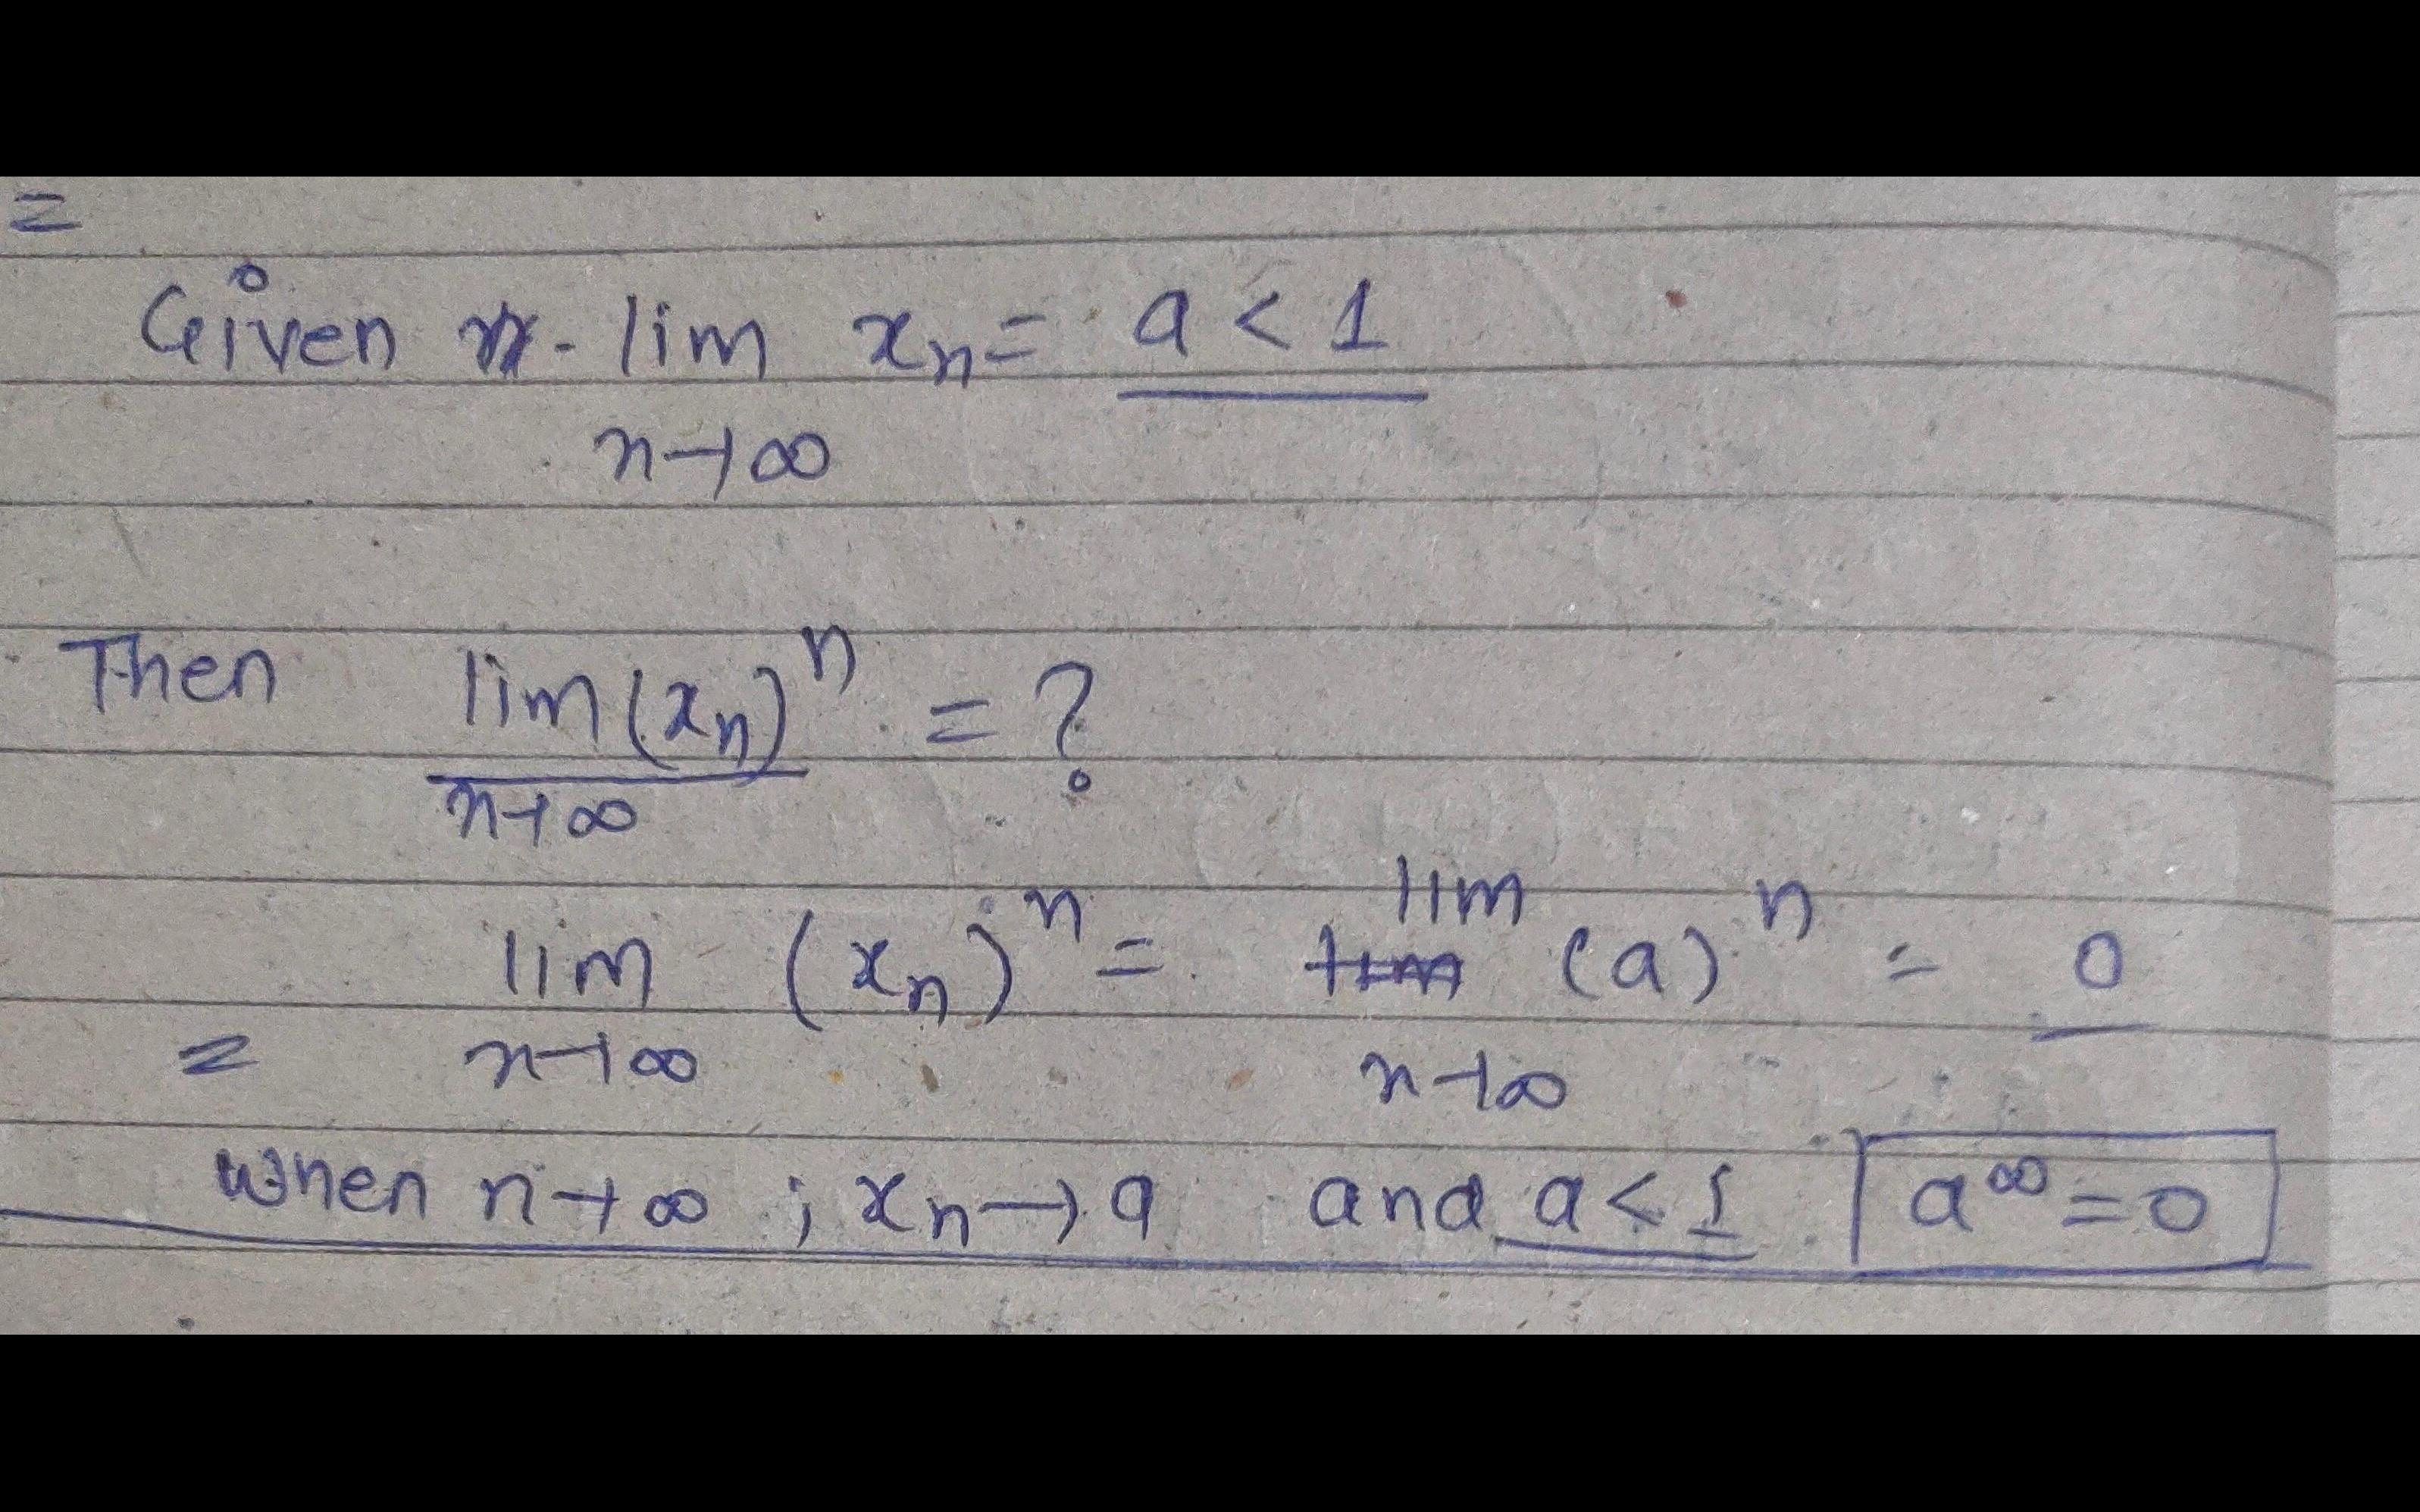 =
Given lim xₙ = a < 1
n→∞
Then lim (xₙ)ⁿ = ?
n→∞
lim (xₙ)ⁿ = lim (a)ⁿ = 0
= n→∞ n→∞
when n→∞ ; xₙ→a and a < 1 a^∞ = 0